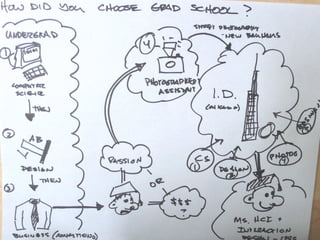 HOW DID YOU CHOOSE GRAD SCHOOL?
UNDERGRAD
1
COMPUTER
SCIENCE
THEN
2
AB
DESIGN
THEN
3
BUSINESS
PASSION
OR
$$$
?
4
PHOTOGRAPHER
ASSISTANT
STREET PHOTOGRAPHY
NEW
I.D.
1 CS
2
DESIGN
PHOTOS
MS. HCI +
INTERACTION
DESIGN